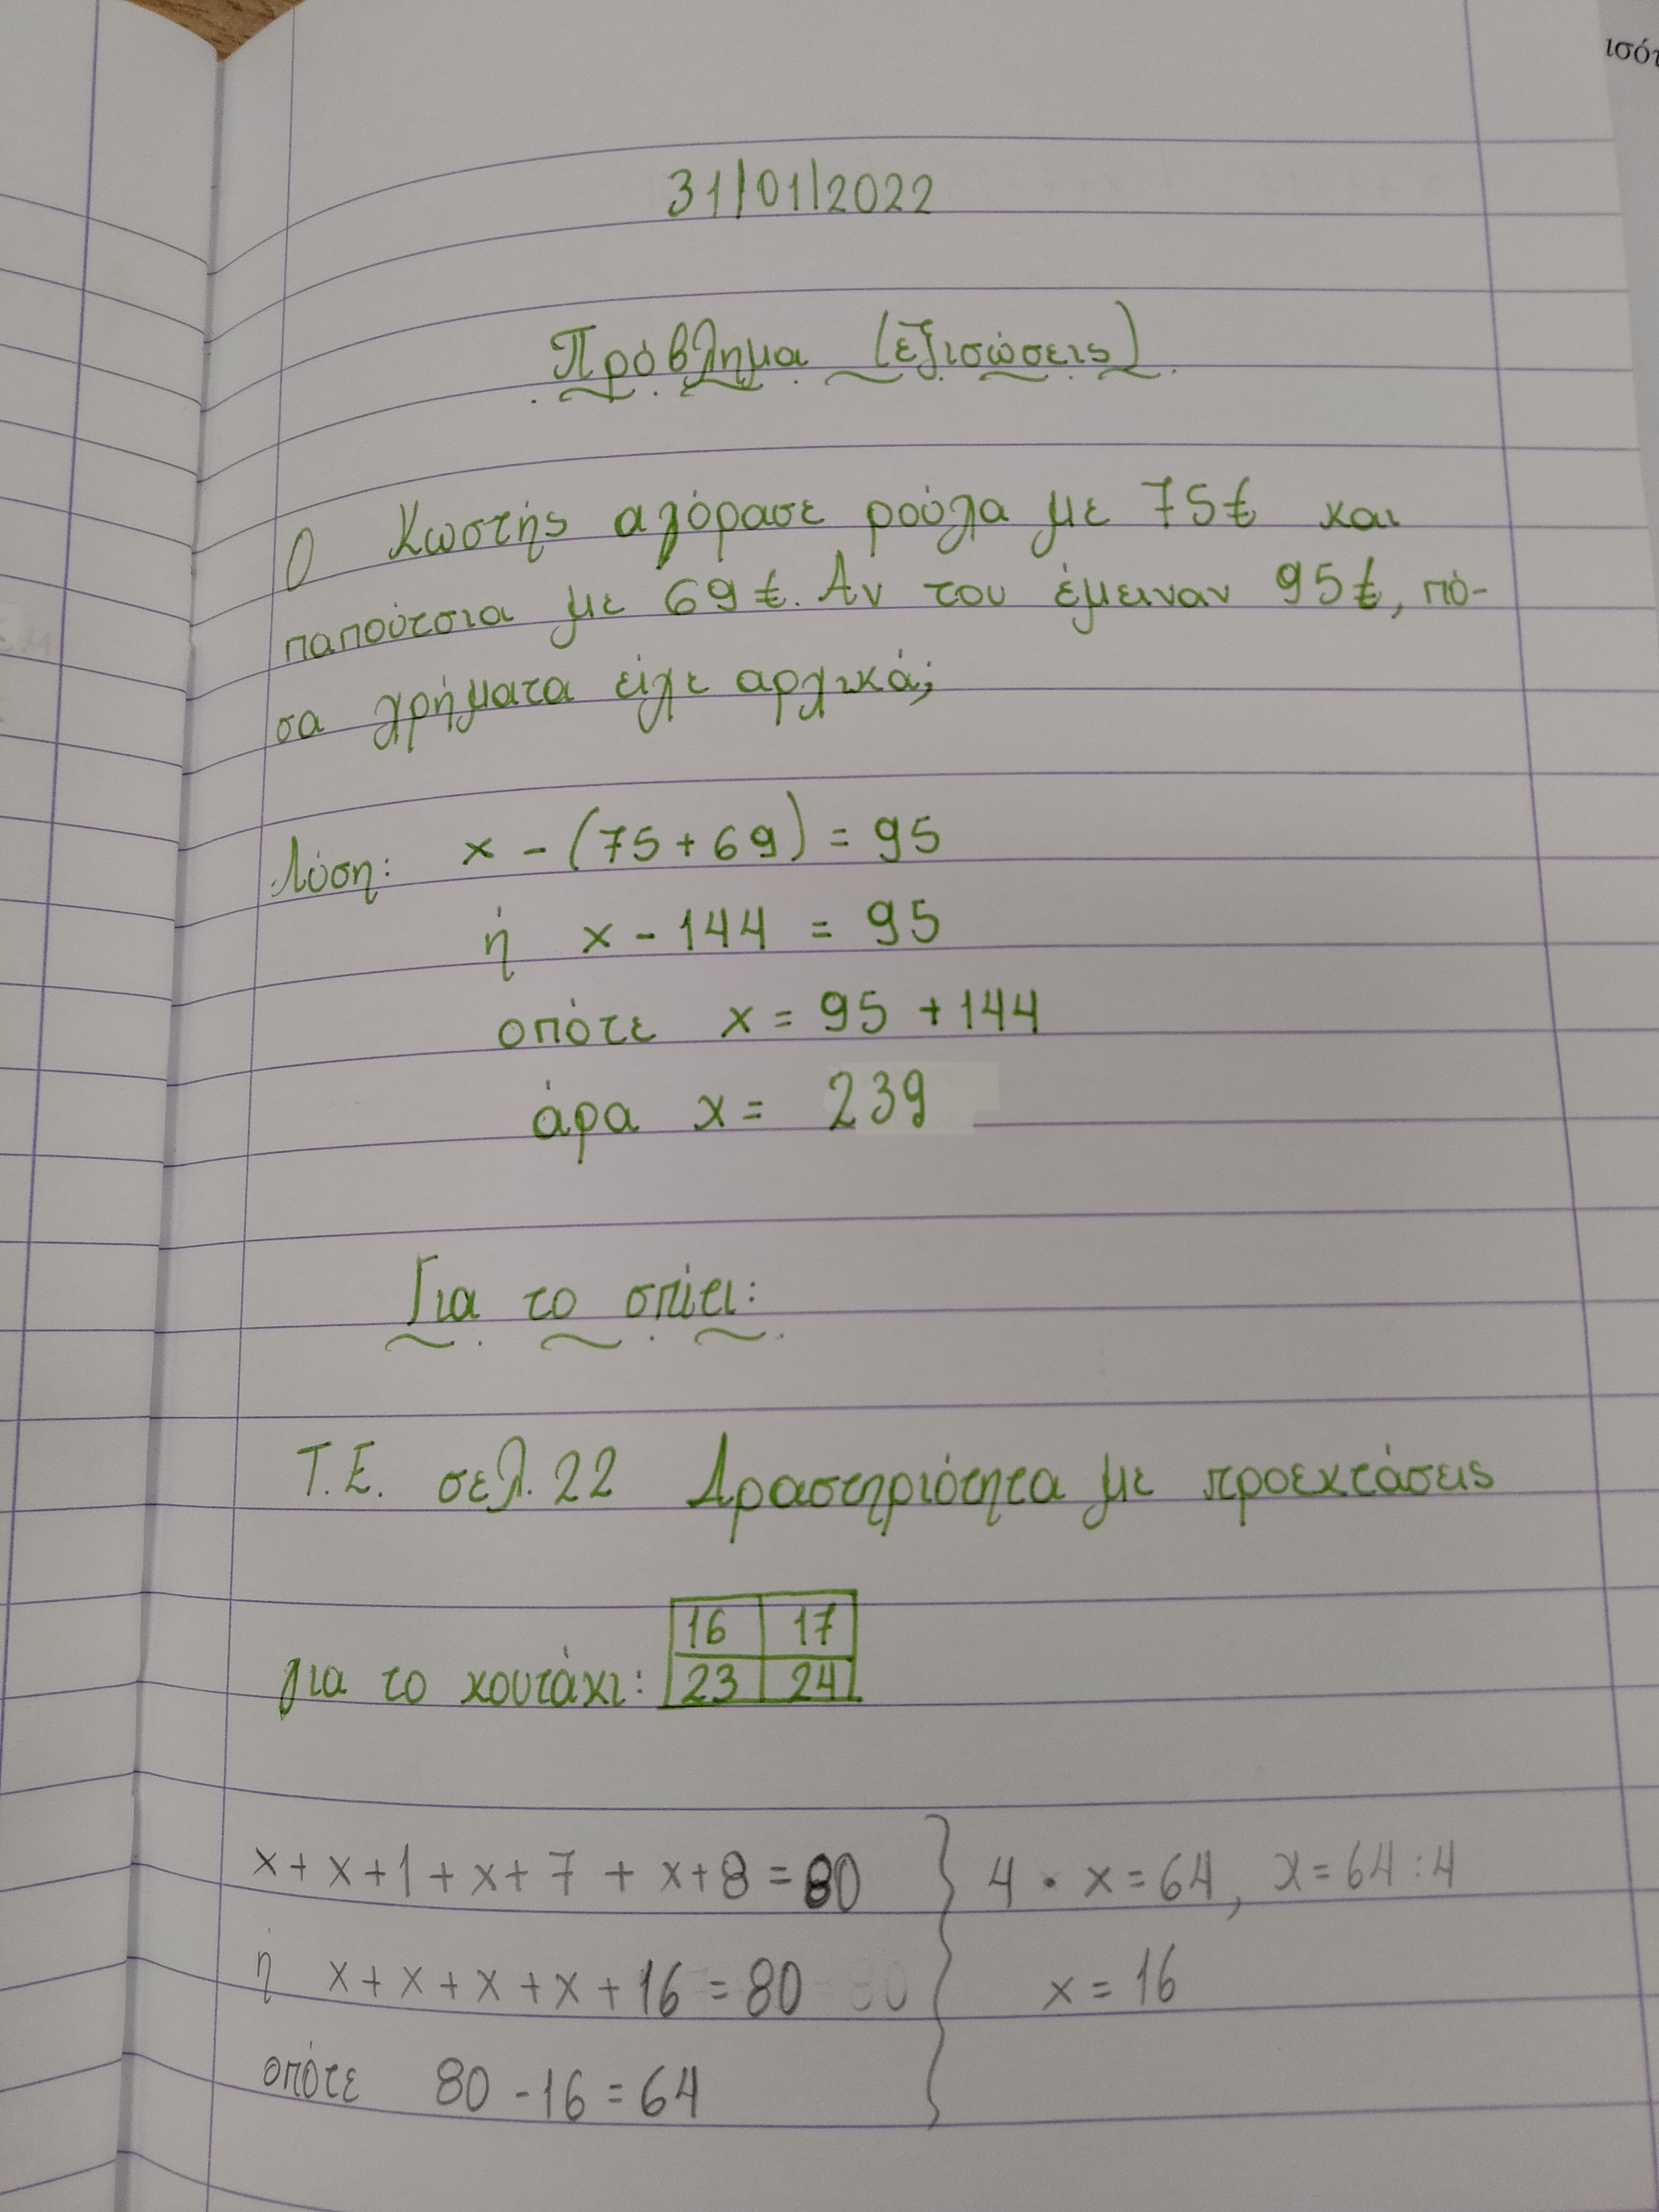 ισότ
31/01/2022
Πρόβλημα (εξισώσεις)
Ο Κωστής αγόρασε ρούχα με 75€ και
παπούτσια με 69€. Αν του έμειναν 95€, πό-
σα χρήματα είχε αρχικά;
Λύση: x - (75 + 69) = 95
ή x - 144 = 95
οπότε x = 95 + 144
άρα x = 239
Για το σπίτι:
Τ.Ε. σελ. 22 Δραστηριότητα με προεκτάσεις
16 17
για το κουτάκι: 23 24
x + x + 1 + x + 7 + x + 8 = 80 } 4 · x = 64, x = 64 : 4
ή x + x + x + x + 16 = 80 x = 16
οπότε 80 - 16 = 64